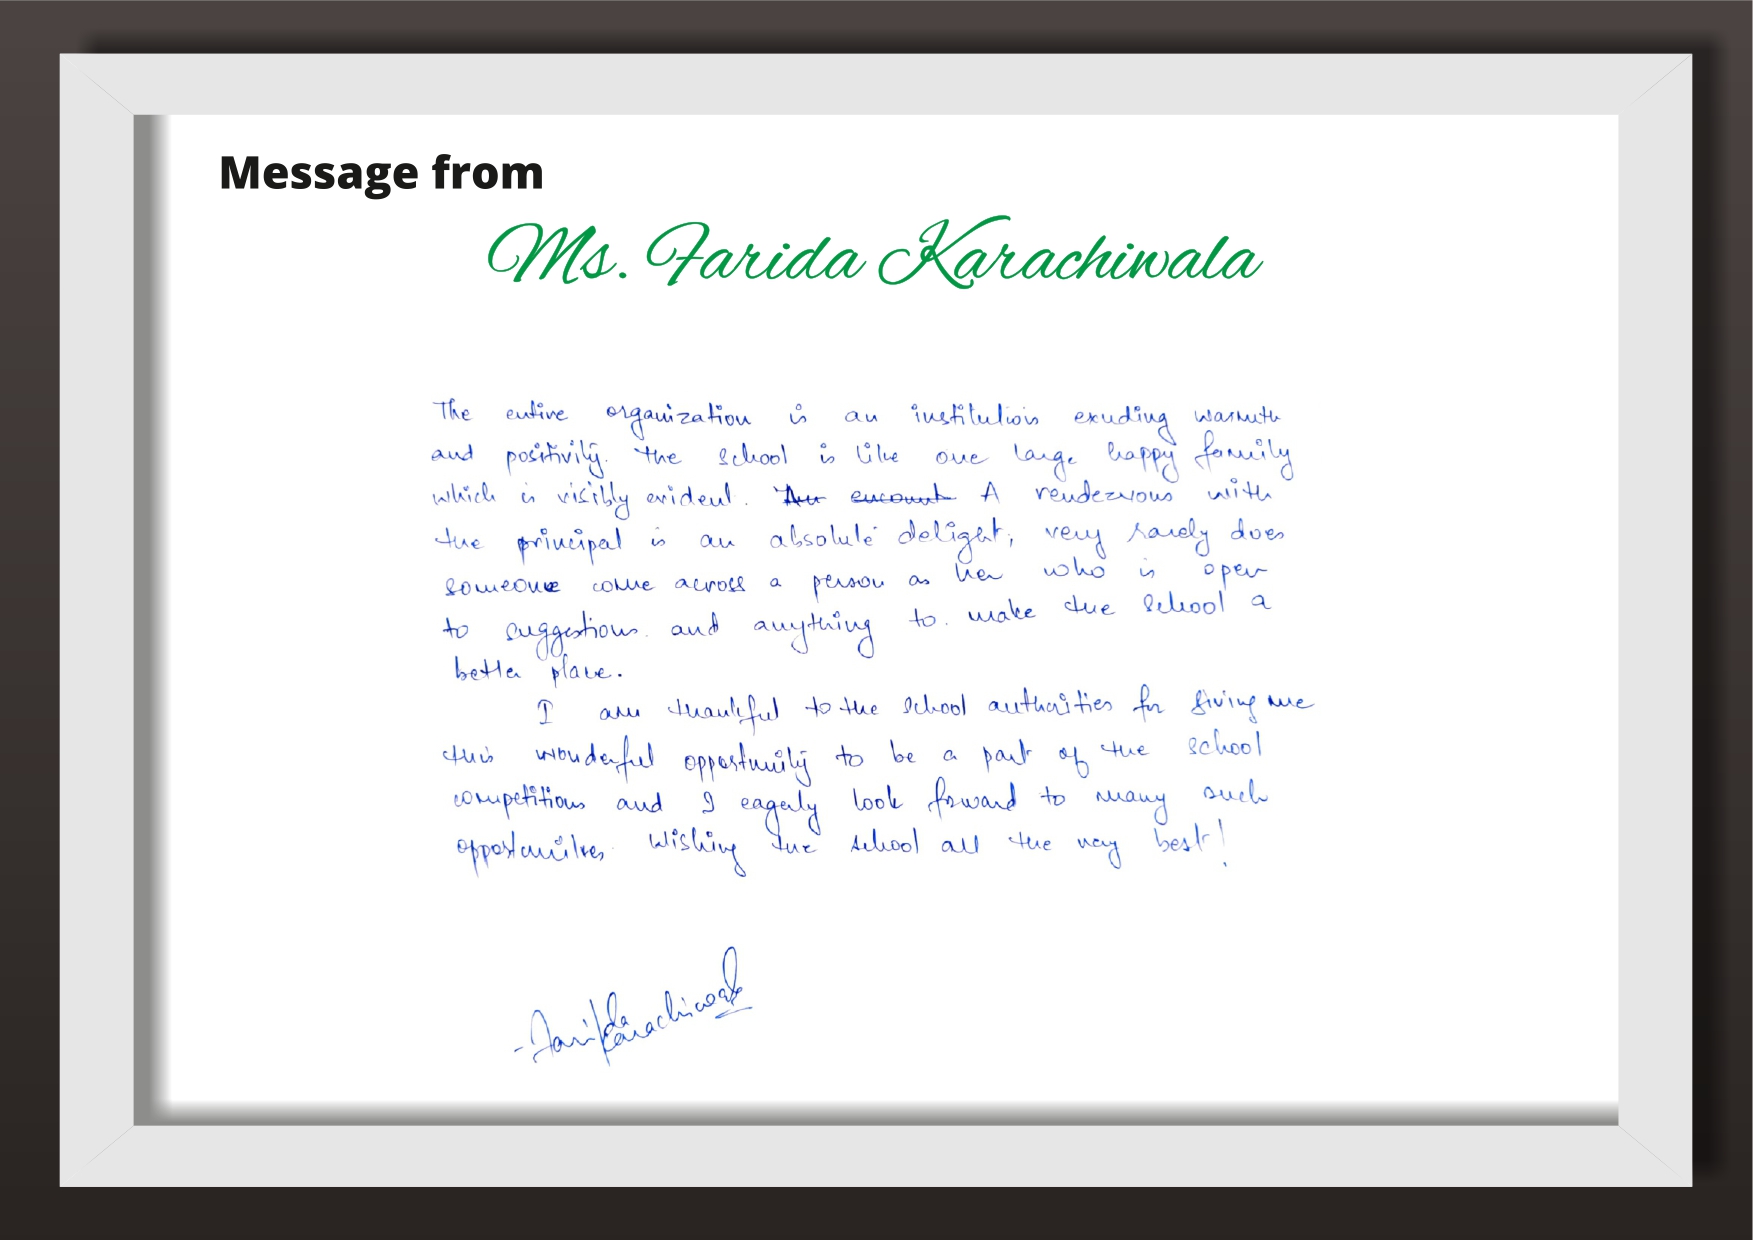 Message from
Ms. Farida Karachiwala
The entire organization is an institution exuding warmth
and positivity. The school is like one large happy family
which is visibly evident. An encount A rendezvous with
the principal is an absolute delight; very rarely does
someone come across a person as her who is open
to suggestions and anything to make the school a
better place.
I am thankful to the school authorities for giving me
this wonderful opportunity to be a part of the school
competitions and I eagerly look forward to many such
opportunities. Wishing the school all the very best!
- Farida Karachiwala